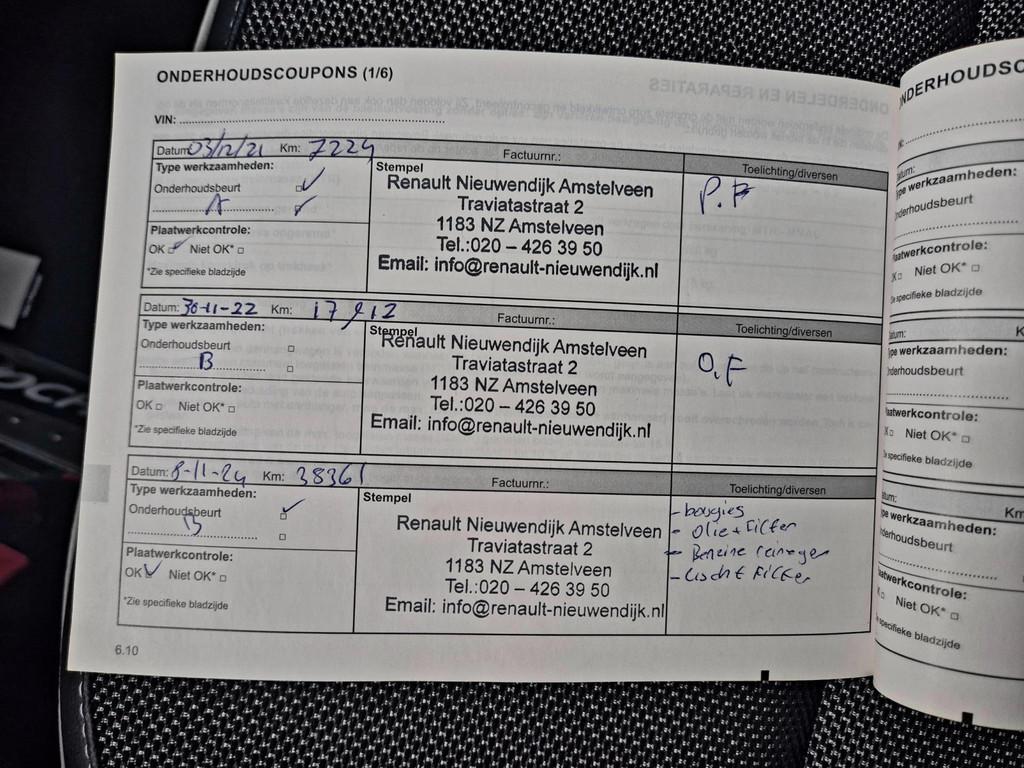 ONDERHOUDSCOUPONS (1/6)
VIN:
Datum: 03/12/21 Km: 7224 Factuurnr.:
Type werkzaamheden:
Onderhoudsbeurt
A
Plaatwerkcontrole:
OK Niet OK*
*Zie specifieke bladzijde
Stempel
Renault Nieuwendijk Amstelveen
Traviatastraat 2
1183 NZ Amstelveen
Tel.:020 – 426 39 50
Email: info@renault-nieuwendijk.nl
Toelichting/diversen
P.F
Datum: 30-11-22 Km: Factuurnr.:
Type werkzaamheden:
Onderhoudsbeurt
B
Plaatwerkcontrole:
OK Niet OK*
*Zie specifieke bladzijde
Stempel
Renault Nieuwendijk Amstelveen
Traviatastraat 2
1183 NZ Amstelveen
Tel.:020 – 426 39 50
Email: info@renault-nieuwendijk.nl
Toelichting/diversen
O,F
Datum: 8-11-24 Km: 38361 Factuurnr.:
Type werkzaamheden:
Onderhoudsbeurt
B
Plaatwerkcontrole:
OK Niet OK*
*Zie specifieke bladzijde
Stempel
Renault Nieuwendijk Amstelveen
Traviatastraat 2
1183 NZ Amstelveen
Tel.:020 – 426 39 50
Email: info@renault-nieuwendijk.nl
Toelichting/diversen
- bougies
- olie + Filter
- Benzine reiniger
- Lucht Filter
6.10
NDERHOUDSC
atum:
pe werkzaamheden:
nderhoudsbeurt
aatwerkcontrole:
Niet OK*
specifieke bladzijde
atum:
pe werkzaamheden:
nderhoudsbeurt
aatwerkcontrole:
Niet OK*
specifieke bladzijde
tum: Km
pe werkzaamheden:
derhoudsbeurt
atwerkcontrole:
Niet OK*
specifieke bladzijde